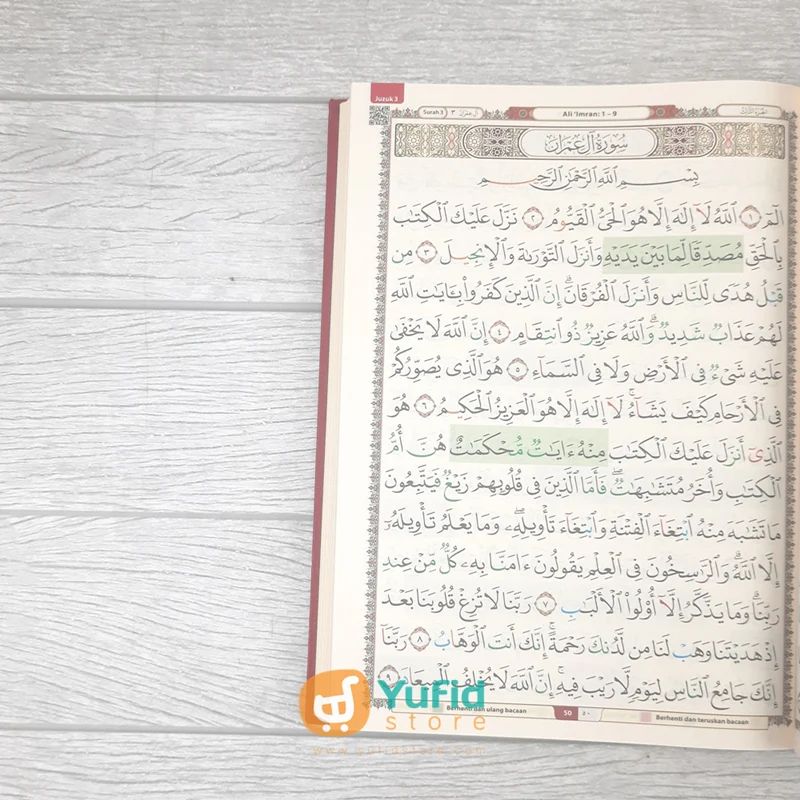 Juzuk 3
Surah 3 ٣ آل عمران
Ali 'Imran: 1 - 9
سُورَةُ آلِ عِمْرَانَ
بِسْمِ ٱللَّهِ ٱلرَّحْمَٰنِ ٱلرَّحِيمِ
الٓمٓ ١ ٱللَّهُ لَآ إِلَٰهَ إِلَّا هُوَ ٱلْحَىُّ ٱلْقَيُّومُ ٢ نَزَّلَ عَلَيْكَ ٱلْكِتَٰبَ
بِٱلْحَقِّ مُصَدِّقًا لِّمَا بَيْنَ يَدَيْهِ وَأَنزَلَ ٱلتَّوْرَىٰةَ وَٱلْإِنجِيلَ ٣ مِن
قَبْلُ هُدًى لِّلنَّاسِ وَأَنزَلَ ٱلْفُرْقَانَ ۗ إِنَّ ٱلَّذِينَ كَفَرُوا۟ بِـَٔايَٰتِ ٱللَّهِ
لَهُمْ عَذَابٌ شَدِيدٌ ۗ وَٱللَّهُ عَزِيزٌ ذُو ٱنتِقَامٍ ٤ إِنَّ ٱللَّهَ لَا يَخْفَىٰ
عَلَيْهِ شَىْءٌ فِى ٱلْأَرْضِ وَلَا فِى ٱلسَّمَآءِ ٥ هُوَ ٱلَّذِى يُصَوِّرُكُمْ
فِى ٱلْأَرْحَامِ كَيْفَ يَشَآءُ ۚ لَآ إِلَٰهَ إِلَّا هُوَ ٱلْعَزِيزُ ٱلْحَكِيمُ ٦ هُوَ
ٱلَّذِىٓ أَنزَلَ عَلَيْكَ ٱلْكِتَٰبَ مِنْهُ ءَايَٰتٌ مُّحْكَمَٰتٌ هُنَّ أُمُّ
ٱلْكِتَٰبِ وَأُخَرُ مُتَشَٰبِهَٰتٌ ۖ فَأَمَّا ٱلَّذِينَ فِى قُلُوبِهِمْ زَيْغٌ فَيَتَّبِعُونَ
مَا تَشَٰبَهَ مِنْهُ ٱبْتِغَآءَ ٱلْفِتْنَةِ وَٱبْتِغَآءَ تَأْوِيلِهِۦ ۗ وَمَا يَعْلَمُ تَأْوِيلَهُۥٓ
إِلَّا ٱللَّهُ ۗ وَٱلرَّٰسِخُونَ فِى ٱلْعِلْمِ يَقُولُونَ ءَامَنَّا بِهِۦ كُلٌّ مِّنْ عِندِ
رَبِّنَا ۗ وَمَا يَذَّكَّرُ إِلَّآ أُو۟لُوا۟ ٱلْأَلْبَٰبِ ٧ رَبَّنَا لَا تُزِغْ قُلُوبَنَا بَعْدَ
إِذْ هَدَيْتَنَا وَهَبْ لَنَا مِن لَّدُنكَ رَحْمَةً ۚ إِنَّكَ أَنتَ ٱلْوَهَّابُ ٨ رَبَّنَآ
إِنَّكَ جَامِعُ ٱلنَّاسِ لِيَوْمٍ لَّا رَيْبَ فِيهِ ۚ إِنَّ ٱللَّهَ لَا يُخْلِفُ ٱلْمِيعَادَ ٩
Berhenti dan ulang bacaan
50 ٥٠
Berhenti dan teruskan bacaan
Yufid
store
www.yufidstore.com